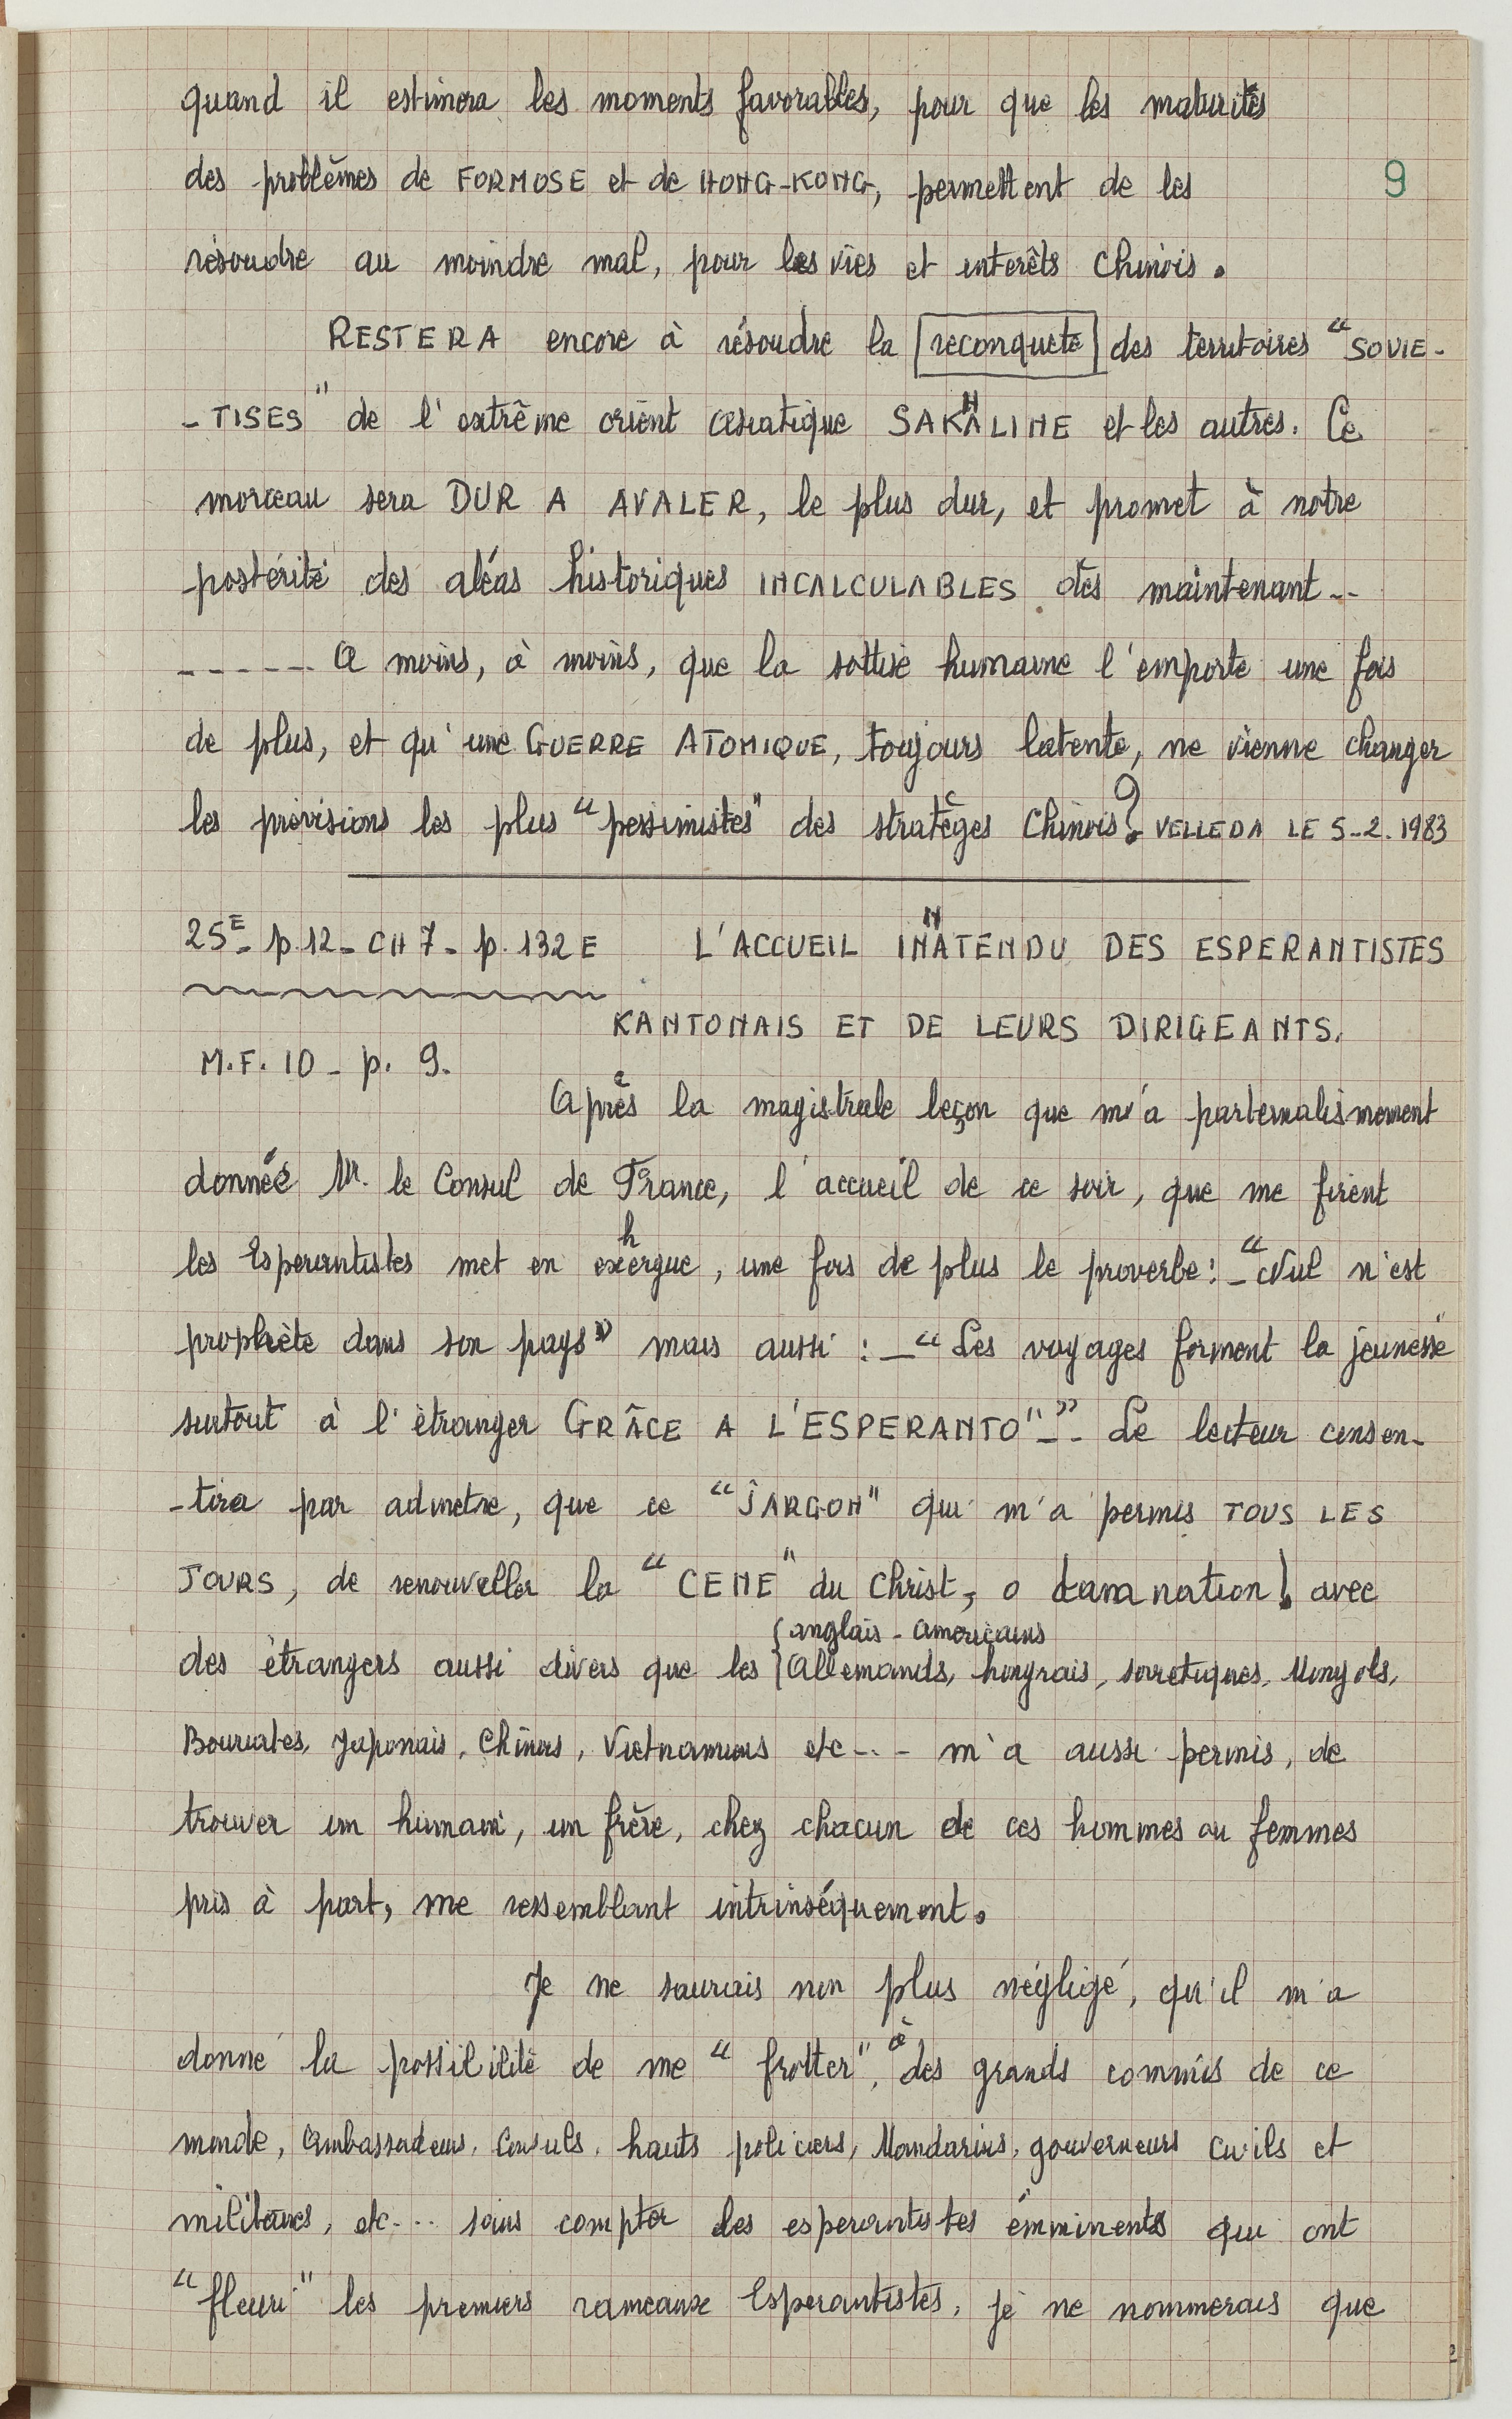 quand il estimera les moments favorables, pour que les maturités
des problèmes de FORMOSE et de HONG-KONG, permettent de les
9
résoudre au moindre mal, pour les vies et interêts Chinois.
RESTERA encore à résoudre la reconquete des territoires "SOVIE-
-TISES" de l'extrême orient asiatique SAKHALINE et les autres. Ce
morceau sera DUR A AVALER, le plus dur, et promet à notre
postérité des aléas historiques INCALCULABLES dès maintenant...
------ A moins, à moins, que la sottise humaine l'emporte une fois
de plus, et qu'une GUERRE ATOMIQUE, toujours latente, ne vienne changer
les prévisions les plus "pessimistes" des stratèges Chinois? VELLEDA LE 5-2.1983
25E- p.12- CH 7- p. 132 E L'ACCUEIL INATENDU DES ESPERANTISTES
KANTONAIS ET DE LEURS DIRIGEANTS.
M.F. 10 - p. 9.
Après la magistrale leçon que m'a parternalismement
donnée M. le Consul de France, l'accueil de ce soir, que me firent
les Esperantistes met en exhergue, une fois de plus le proverbe: -"Nul n'est
prophète dans son pays" mais aussi : -"Les voyages forment la jeunesse"
surtout à l'étranger GRÂCE A L'ESPERANTO"-". Le lecteur consen-
-tira par admetre, que ce "JARGON" qui m'a permis TOUS LES
JOURS, de renouveller la "CENE" du Christ, o damnation! avec
(anglais - americains
des étrangers aussi divers que les Allemands, hongrais, sovietiques, Mongols,
Bouriates, Japonais, Chinois, Vietnamiens etc--- m'a aussi permis, de
trouver un humain, un frère, chez chacun de ces hommes ou femmes
pris à part, me ressemblant intrinséquement.
Je ne saurais non plus négligé, qu'il m'a
donné la possibilité de me "frotter", à des grands commis de ce
monde, Ambassadeurs, Consuls, hauts policiers, Mandarins, gouverneurs civils et
militaires, etc--.. sans compter des esperantistes émminents qui ont
"fleuri" les premiers rameaux Esperantistes, je ne nommerais que